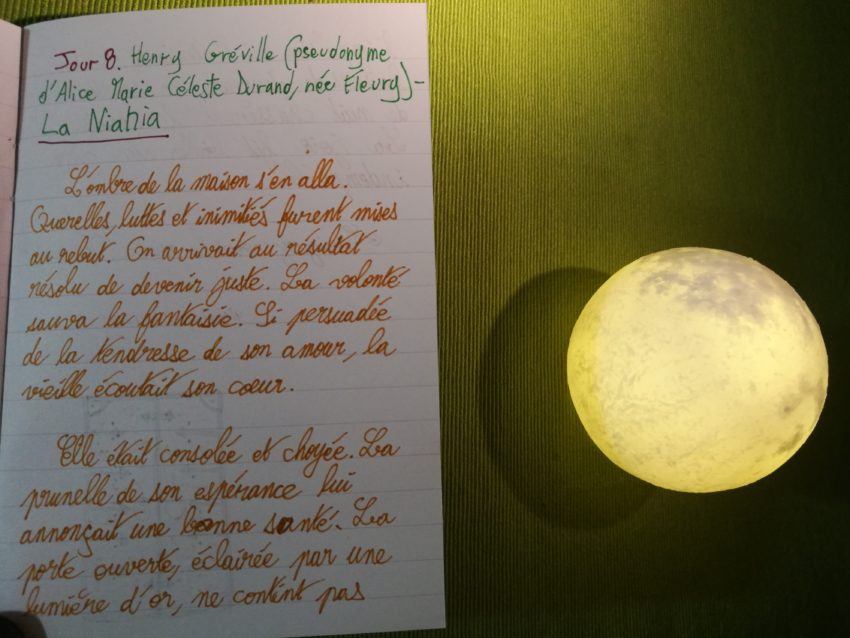 Jour 8. Henry Gréville (pseudonyme
d'Alice Marie Céleste Durand, née Fleury) -
La Niania
L'ombre de la maison s'en alla.
Querelles, luttes et inimitiés furent mises
au rebut. On arrivait au résultat
résolu de devenir juste. La volonté
sauva la fantaisie. Si persuadée
de la tendresse de son amour, la
vieille écoutait son coeur.
Elle était consolée et choyée. La
prunelle de son espérance lui
annonçait une bonne santé. La
porte ouverte, éclairée par une
lumière d'or, ne contint pas